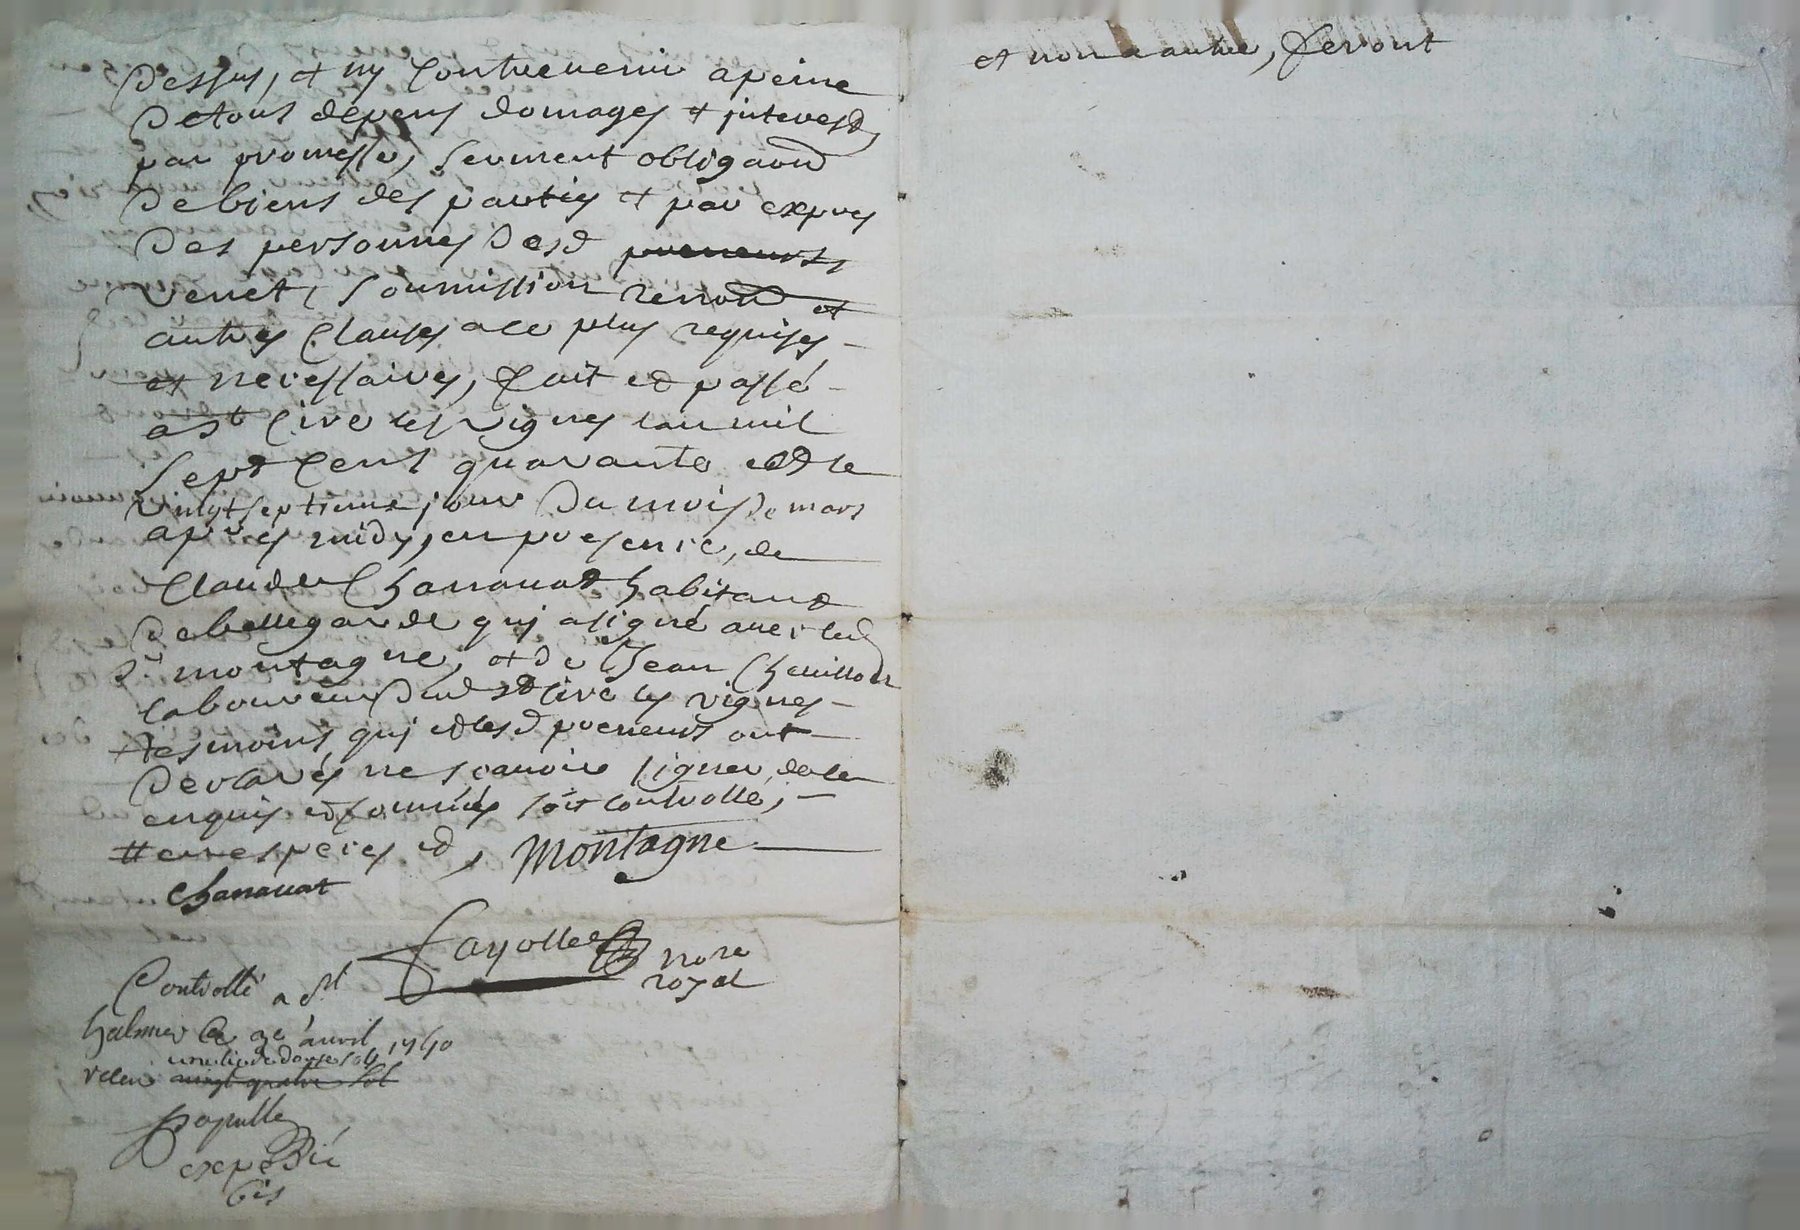 dessus, et ny contrevenir a peine
de tous depens domages et interestz
par promesse, serment obligaond
de biens des parties et par expres
des personnes desd preneurs
venet, soumission renond et
autres clauses a ce plus requises
et necessaires, fait et passé
a st Cire les vignes lan mil
sept cent quarante et le
vingt septieme jour du mois de mars
apres midy, en presence, de
Claude Chanauat habitant
de bellegarde qui a signé avec led
sr montagne, et de Jean
laboureur dud st Cire les vignes
tesmoins qui et lesd preneurs ont
declarés ne scavoir signer de ce
enquis et sommés soit controllé,
et, Montagne
Chanauat
Fayolle nore
royal
Controllé a st
halmier le avril 1740
receu une livre douze sols
vingt quatre sols
expedié
bis
et non a autre, seront